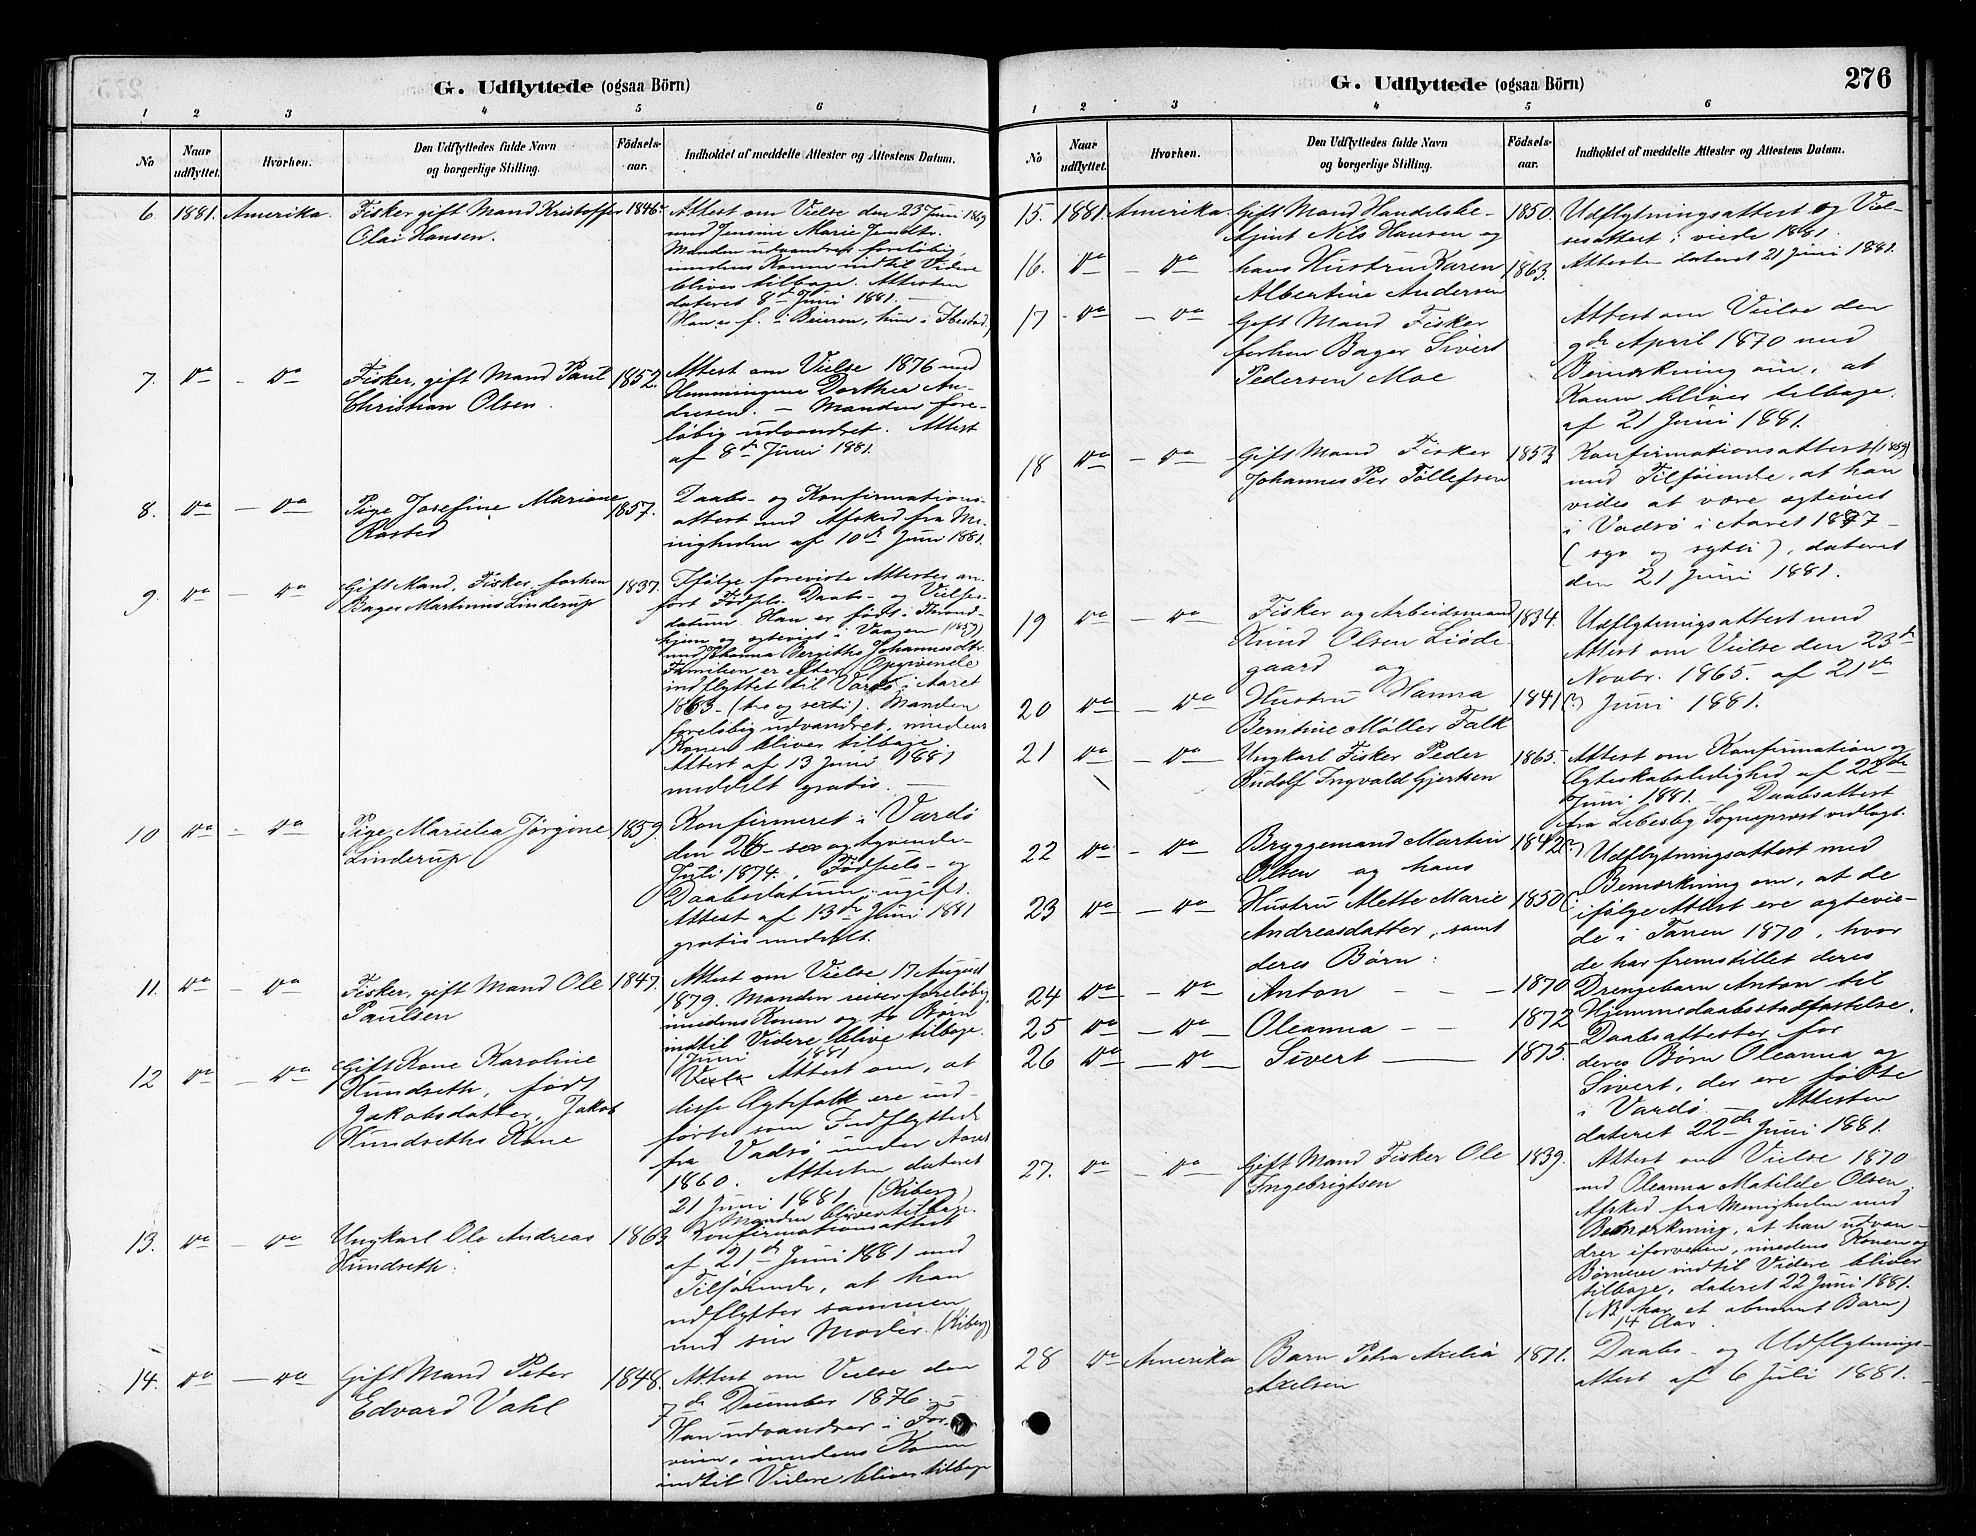 G. Udflyttede (ogsaa Börn)
1 2 3 4 5 6
No
Naar udflyttet.
Hvorhen.
Den Udflyttedes fulde Navn og borgerlige Stilling.
Födsels-aar.
Indholdet af meddelte Attester og Attestens Datum.
6. 1881. Amerika. Fisker gift Mand Kristoffer 1846. Attest om Vielse den 23 Juni 1869
Olai Hansen. med Jensine Marie
Manden udvandrer foreløbig,
medens Konen indtil Videre
bliver tilbage. Attesten
dateret 8de Juni 1881. —
(Han er f. i Beieren, hun i Ibestad)
7. Do - Do Fisker, gift Mand Paul 1852. Attest om Vielse 1876 med
Christian Olsen. Hemmingine Dorthea An-
dresen. — Manden fore-
løbig udvandret. Attest
af 8de Juni 1881.
8. Do - Do Pige Josefine Mariane 1857. Daabs- og Konfirmations-
Rasted attest med Afsked fra Me-
nigheden af 10de Juni 1881.
9. Do - Do Gift Mand, Fisker, forhen 1837. Ifølge foreviste Attester an-
Bager Martinus Linderup ført Fødsels- Daabs- og Vielses-
datum. Han er født i Thrond-
hjem og ægteviet i Vaagen (1859)
med Johanna Bergitha Johannesdtr.
Familien er efter Opgivende
indflyttet til Vardø i Aaret
1863 - (tre og sexti). Manden
foreløbig udvandret, medens
Konen bliver tilbage.
Attest af 13 Juni 1881
meddelt gratis. —
10 Do - Do Pige Marielia Jørgine 1859. Konfirmeret i Vardø
Linderup den 26 - sex og tyvende -
Juli 1874. Fødsels- og
Daabsdatum. ugift.
Attest af 13de Juni 1881
gratis meddelt.
11. Do - Do Fisker, gift Mand Ole 1847. Attest om Vielse 17 August
Paulsen 1879. Manden reiser foreløbig,
medens Konen og to Børn
indtil Videre blive tilbage.
(Juni 1881)
12 Do - Do Gift Kone Karoline Attest om, at
Kundseth, født disse Ægtefolk ere ind-
Jakobsdatter, Jakob førte som Indflyttede
Kundseths Kone fra Vadsø under Aaret
1860. Attesten dateret
21 Juni 1881. (Kiberg)
Manden bliver tilbage.
13. Do - Do Ungkarl Ole Andreas 1863 Konfirmationsattest
Kundseth. af 21de Juni 1881 med
Tilføiende, at han
udflytter sammen
med sin Moder. (Kiberg)
14. Do - Do Gift Mand Peter 1848. Attest om Vielse den
Edvard Vahl 7de December 1876.
Han udvandrer i For-
veien, medens Konen
indtil Videre bliver tilbage
G. Udflyttede (ogsaa Börn) 276
1 2 3 4 5 6
No
Naar udflyttet.
Hvorhen.
Den Udflyttedes fulde Navn og borgerlige Stilling.
Födsels-aar.
Indholdet af meddelte Attester og Attestens Datum.
15. 1881. Amerika. Gift Mand Handelsbe- 1850. Udflytningsattest og Viel-
tjent Nils Hansen og sesattest; viede 1881.
16. Do - Do hans Hustru Karen 1863. Attesten dateret 21 Juni 1881.
Albertine Andersen
17 Do - Do Gift Mand Fisker Attest om Vielse den
forhen Bager Sivert 9de April 1870 med
Pedersen Moe Bemærkning om, at
Konen bliver tilbage.
af 21 Juni 1881.
18 Do - Do Gift Mand Fisker 1853 Konfirmationsattest (1853)
Johannes Per Tollefsen med Tilføiende, at han
vides at være ægteviet
i Vadsø i Aaret 1877 -
(syv og sytti), dateret
den 21 Juni 1881.
19 Do - Do Fisker og Arbeidsmand 1834. Udflytningsattest med
Knud Olsen Liøde- Attest om Vielse den 23de
gaard og Novbr. 1865. af 21de
20 Do - Do Hustru Hanna 1841(?) Juni 1881.
Berntine Møller Falk
21 Do - Do Ungkarl Fisker Peder 1865. Attest om Konfirmation og
Rudolf Ingvald Gjertsen Ægteskabsledighed af 22de
Juni 1881. — Daabsattest
fra Lebesby Sogneprest vedlagt.
22 Do - Do Bryggemand Martin 1842(?) Udflytningsattest med
Olsen og hans Bemærkning om, at de
23 Do - Do Hustru Mette Marie 1850(?) ifølge Attest ere ægtevie-
Andreasdatter, samt de i Tanen 1870, hvor
deres Børn: de har fremstillet deres
24 Do - Do Anton - - - 1870 Drengebarn Anton til
25 Do - Do Oleanna - - 1872 Hjemmedaabsstadfæstelse.
Daabsattester for
26 Do - Do Sivert — 1875. deres Børn Oleanna og
Sivert, der ere fødte
i Vardø. — Attesten
dateret 22de Juni 1881.
27. Do - Do Gift Mand Fisker Ole 1839. Attest om Vielse 1870
Ingebrigtsen med Oleanna Matilde Olsen.
Afsked fra Menigheden med
Bemærkning, at han udvan-
drer iforveien, medens Konen og
Børnene indtil Videre bliver
tilbage, dateret 22 Juni 1881.
(NB har et Barn)
14 Aar.
28 Do Amerika Barn Petra Axelia 1871. Daabs- og Udflytnings-
Axelsen attest af 6 Juli 1881. -